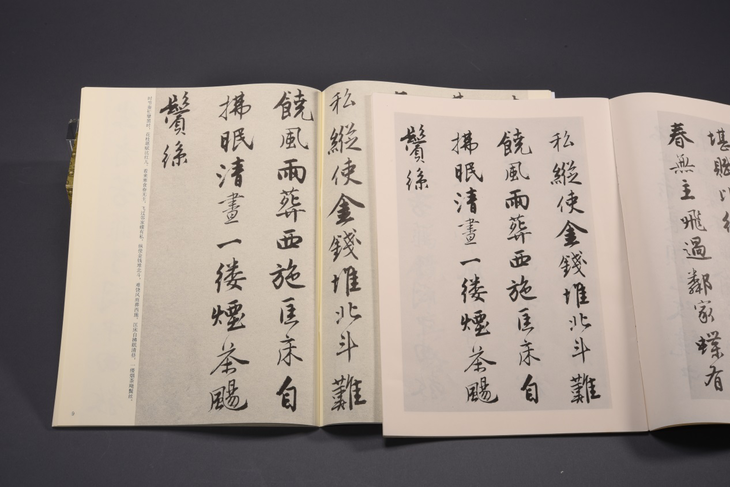 私縱使金錢堆北斗難
饒風雨葬西施匡床自
拂眠清晝一縷煙茶颺
鬢絲
堪賦比
春無主飛過鄰家蝶有
私縱使金錢堆北斗難
饒風雨葬西施匡床自
拂眠清晝一縷煙茶颺
鬢絲